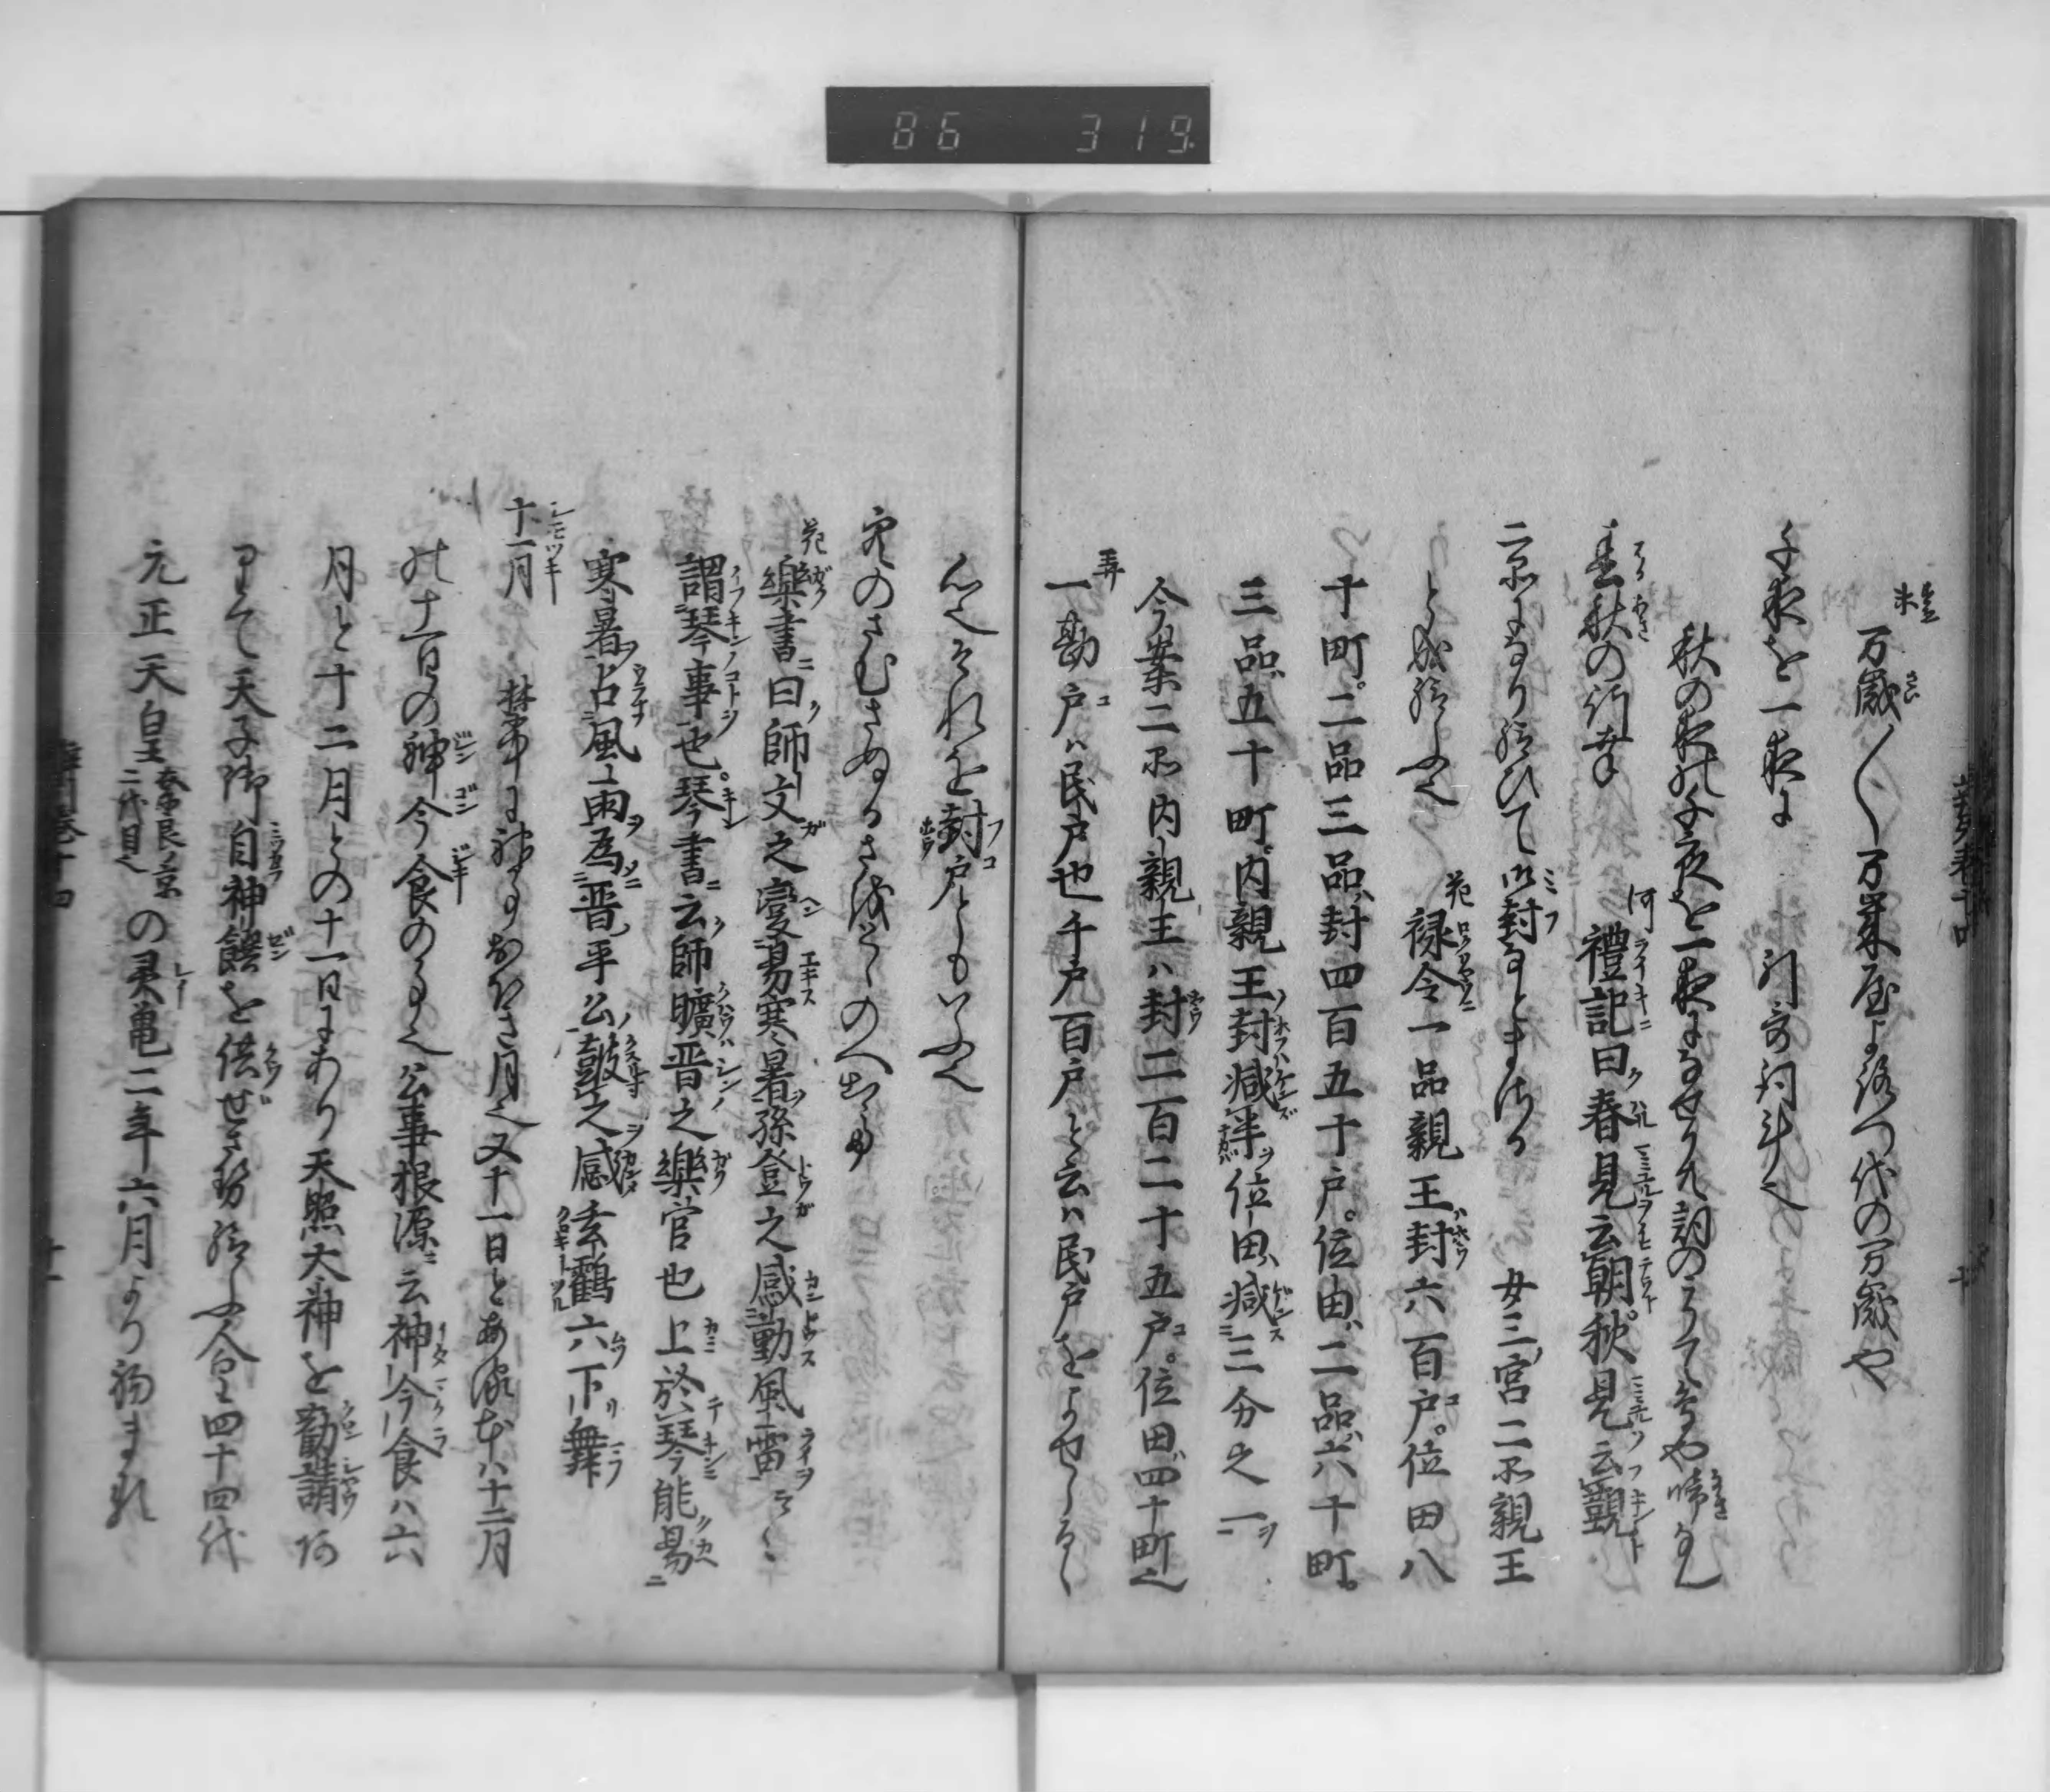 86 319
万歳〳〵万葉
代の万歳や
千夜を一夜に
引哥詞斗也
秋の夜の千夜を一夜になせりて詞の
春秋の行幸
河 禮記ニ曰ク春見云朝。秋見云覲
二品になり給ひて御封なとまさる
女三宮二品親王
と成給ふ也
花 禄令一品親王封六百戸。位田八
十町。二品三品封四百五十戸。位田二品六十町。
三品五十町。内親王封減半位田減三分之一
今案二品内親王ハ封二百二十五戸。位田四十町也
弄
一勘戸ハ民戸也千戸百戸と云ハ民戸をよせらるゝ
心也それを封戸ともいふ也
花 樂書ニ曰師文之變易寒暑孫登之感動風雷
謂琴事也。琴書ニ云師曠晋之樂官也上於琴能易
寒暑占風雨為晋平公皷之感玄鶴六下舞
十一月
禁中に神事おほき月也又十一日とある本ハ十二月
の十一日の神今食の事也公事根源ニ云神今食ハ六
月と十二月との十一日にあり天照大神を勧請
して天子御自神饌を供ぜさせ給ふ人皇四十四代
元正天皇 奈良ノ京二代目也 の灵亀二年六月より初まれ